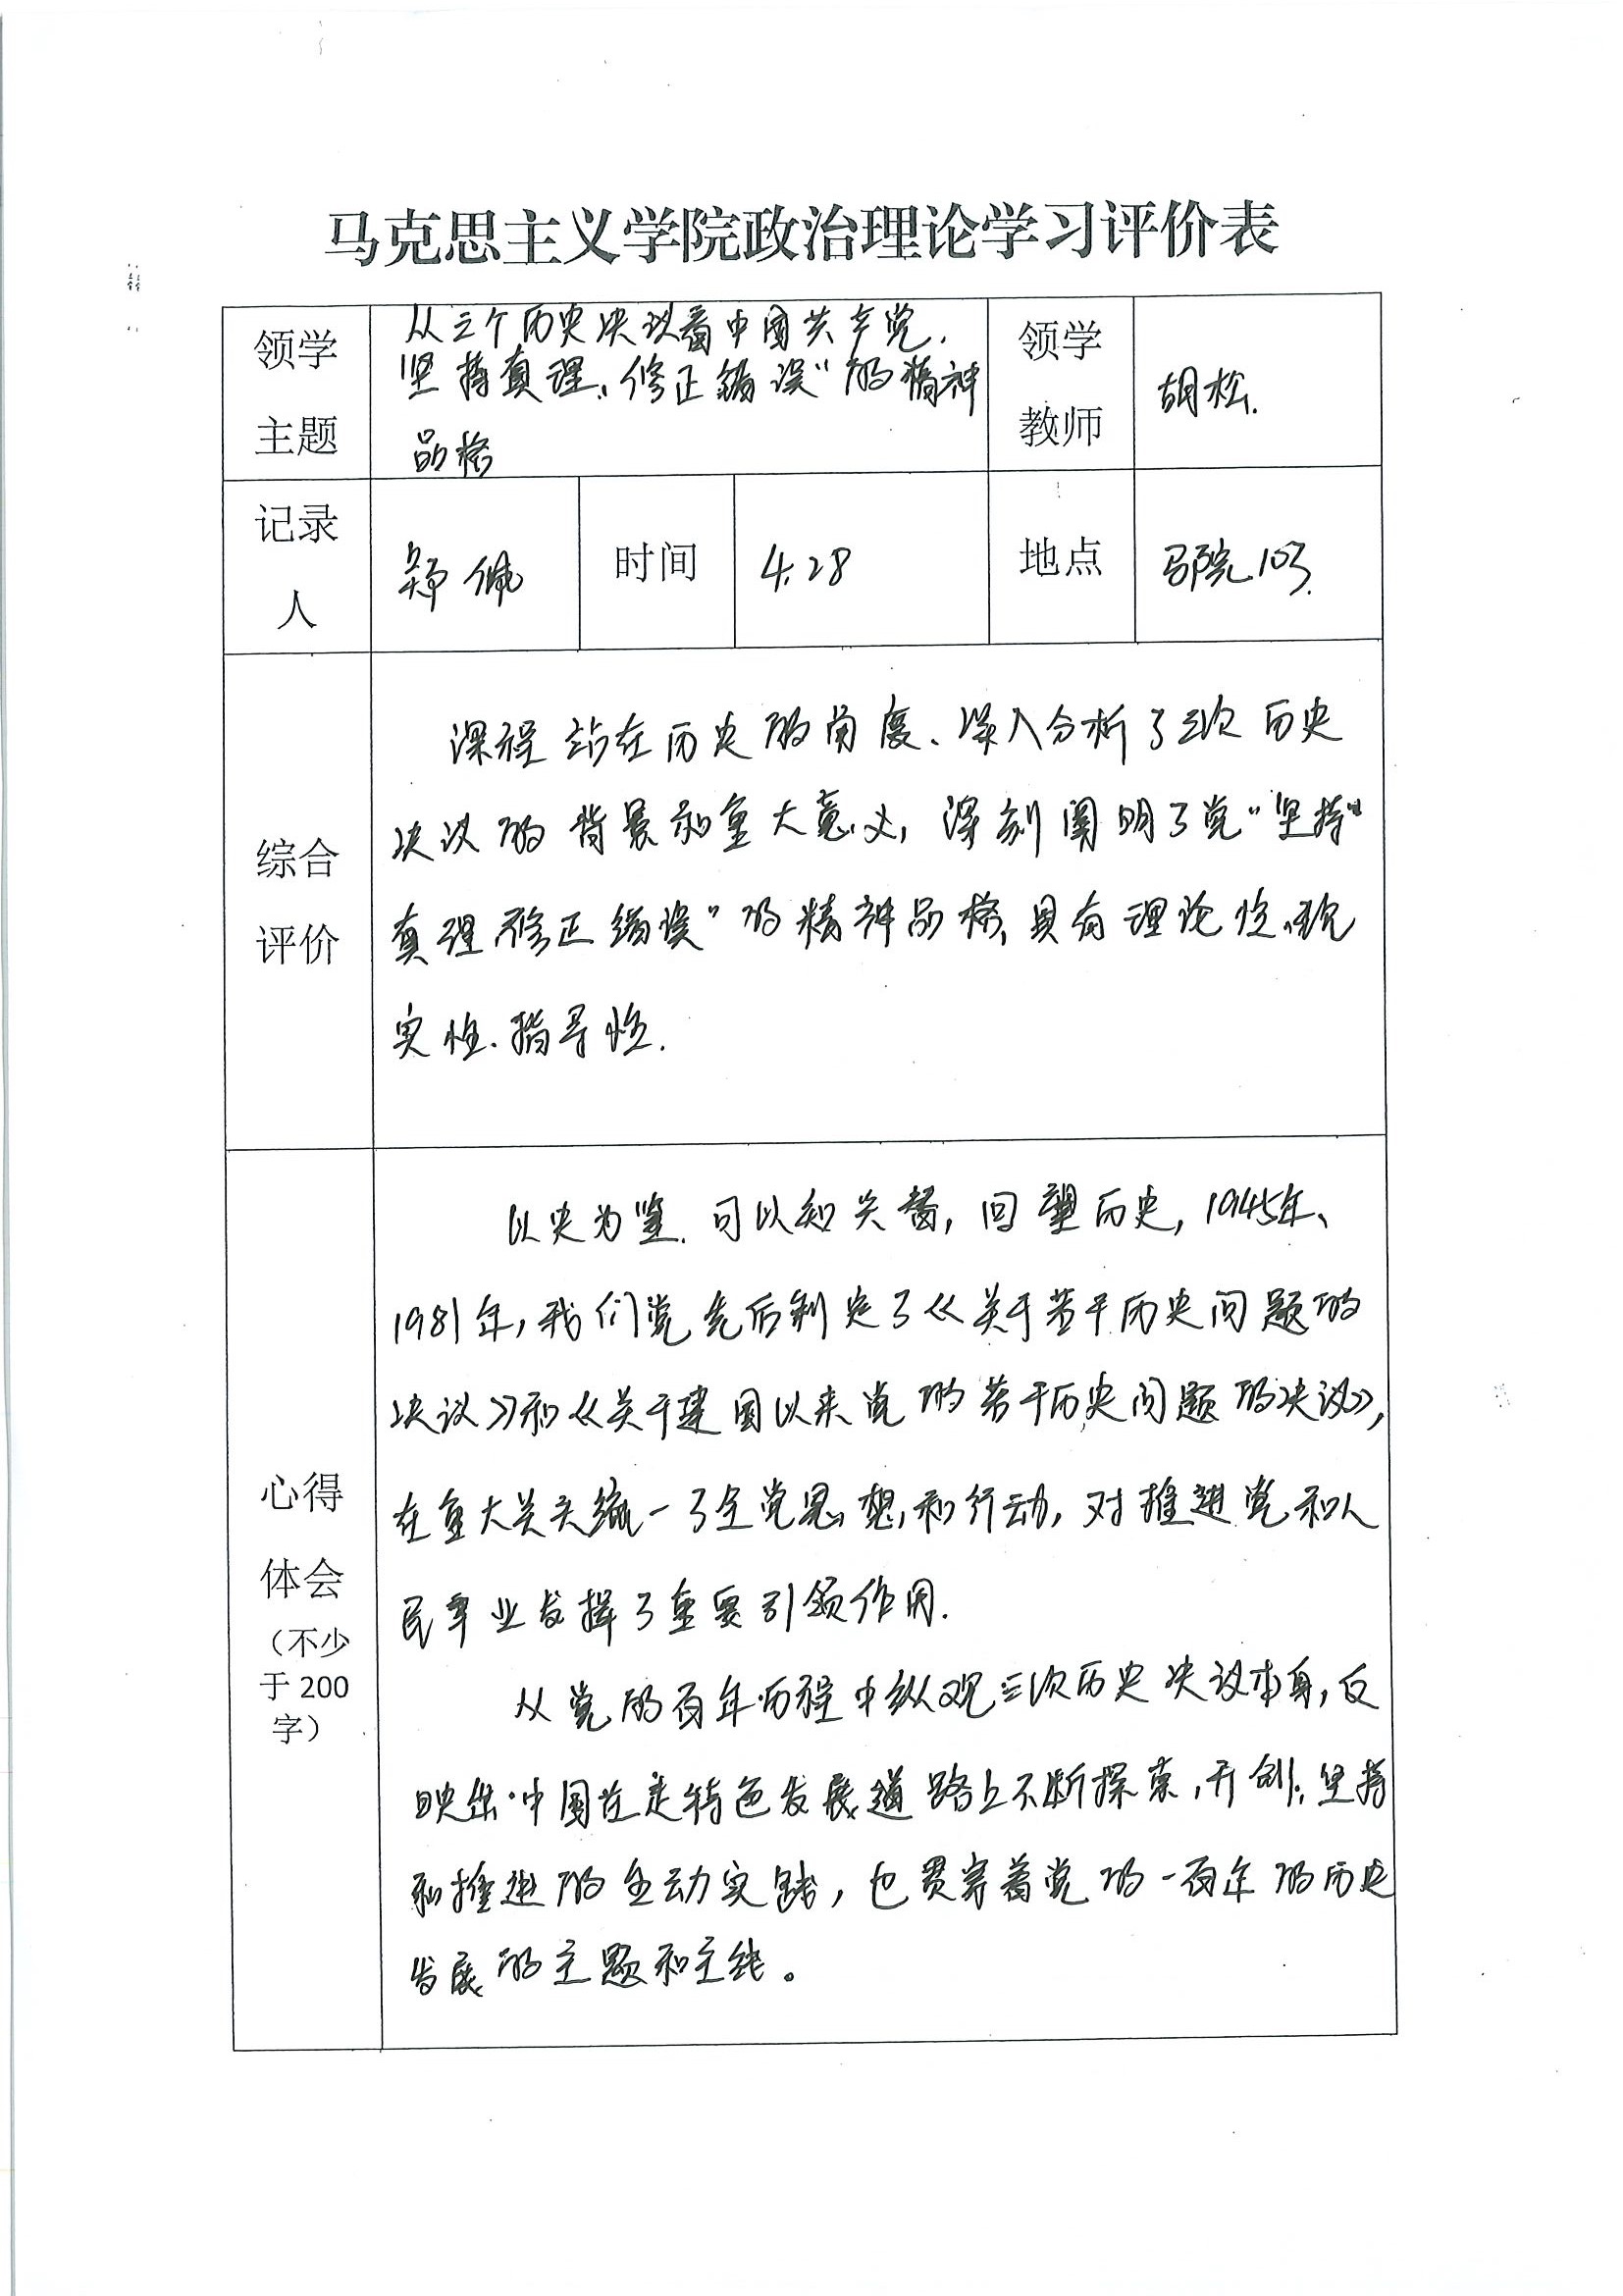 马克思主义学院政治理论学习评价表
领学
主题
从三个历史决议看中国共产党.
坚持真理、修正错误"的精神
品格
领学
教师
胡松.
记录
人
郑佩
时间
4.28
地点
马院103.
综合
评价
课程站在历史的角度、深入分析了三次历史
决议的背景和重大意义,深刻阐明了党"坚持"
真理修正错误"的精神品格、具有理论性、现
实性、指导性.
心得
体会
(不少
于200
字)
以史为鉴.可以知兴替,回望历史,1945年、
1981年,我们党先后制定了《关于若干历史问题的
决议》和《关于建国以来党的若干历史问题的决议》,
在重大关头统一了全党思想和行动,对推进党和人
民事业发挥了重要引领作用.
从党的百年历程中纵观三次历史决议本身,反
映出中国在走特色发展道路上不断探索,开创,坚持
和推进的生动实践,也贯穿着党的一百年的历史
发展的主题和主线。